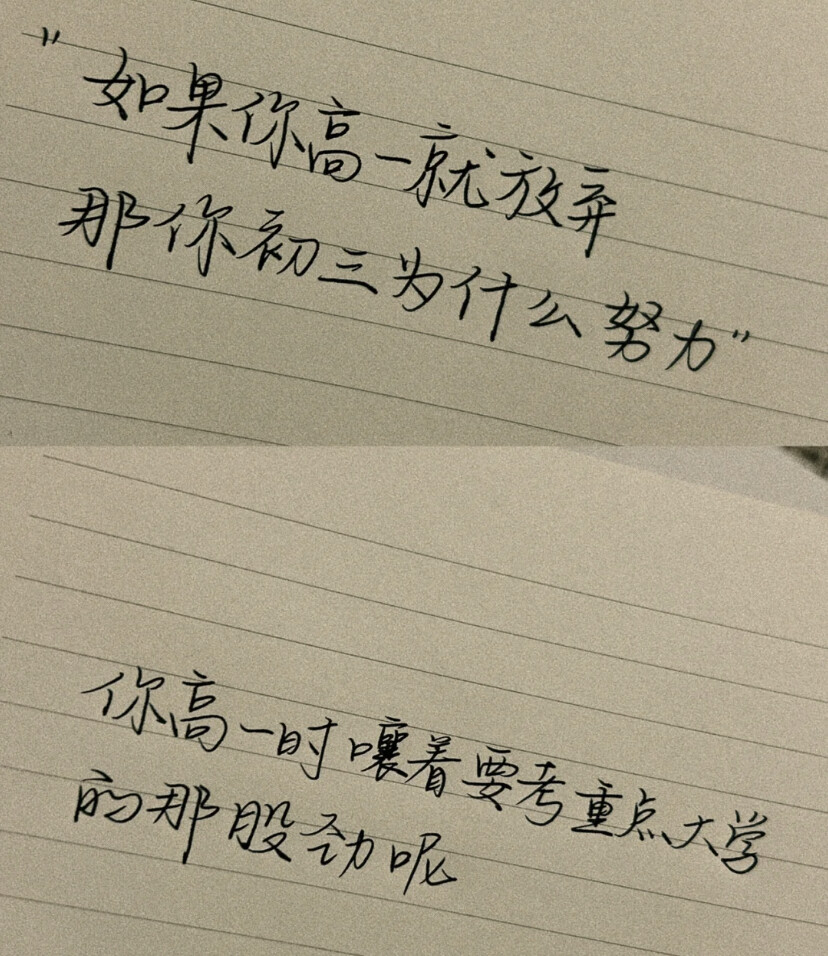 "如果你高一就放弃
那你初三为什么努力"
你高一时嚷着要考重点大学
的那股劲呢